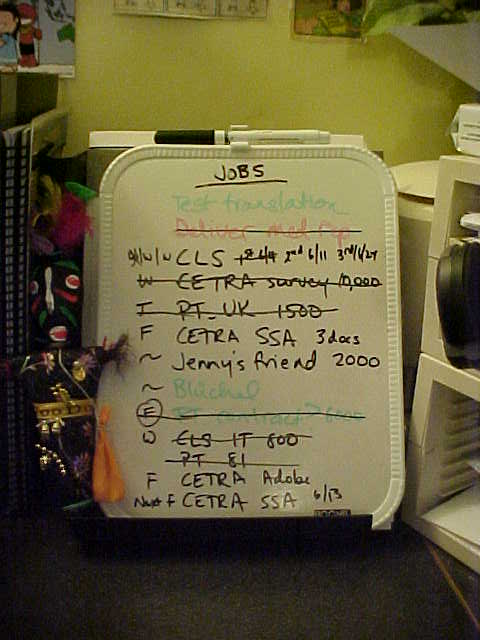 JOBS
Test translation
Deliver med
CLS 2nd 6/11 3rd
W CETRA survey 10,000
T PT-UK 1500
F CETRA SSA 3 docs
~ Jenny's friend 2000
~ Blüchel
F PT contract?
W CLS IT 800
PT 81
F CETRA Adobe
Next F CETRA SSA 6/13